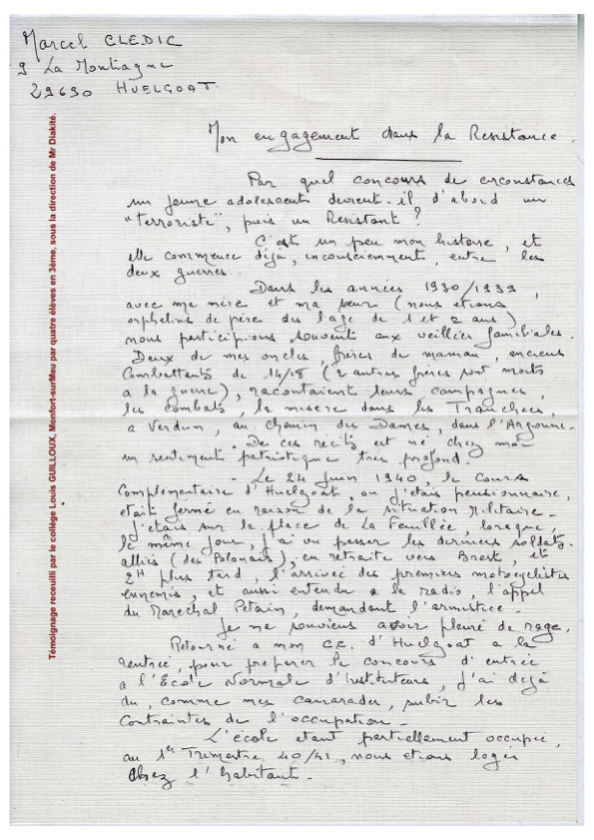 Marcel CLEDIC
9 La Montiagne
29690 HUELGOAT
Témoignage receuilli par le collège Louis GUILLOUX, Monfort-surMeu par quatre élèves en 3ème, sous la direction de Mr Diakité.
Mon engagement dans la Resistance.
Par quel concours de circonstances
un jeune adolescents devient-il d'abord un
"terroriste", puis un Resistant ?
C'est un peu mon histoire, et
elle commence déjà, inconsciemment, entre les
deux guerres.
Dans les années 1930/1939,
avec ma mère et ma sœur (nous etions
orphelins de père des l'age de 1 et 2 ans)
nous participions souvent aux veillées familiales.
Deux de mes oncles, frères de maman, anciens
Combattants de 14/18 (2 autres frères sont morts
a la guerre), racontaient leurs campagnes,
les combats, la misere dans les Tranchées,
a Verdun, au Chemin des Dames, dans l'Argonne.
De ces recits est né chez moi
un sentiment patriotique très profond.
- Le 24 Juin 1940, le Cours
Complementaire d'Huelgoat, ou j'etais pensionnaire,
etait fermé en raison de la situation militaire.
J'etais sur la place de La Feuillée lorsque,
le même jour, j'ai vu passer les derniers soldats
alliés (des Polonais), en retraite vers Brest, et
2H plus tard, l'arrivée des premiers motocyclistes
ennemis, et aussi entendu a la radio, l'appel
du Marechal Petain, demandant l'armistice.
Je me souviens avoir pleuré de rage.
Retourné a mon C.C. d'Huelgoat a la
rentrée, pour preparer le concours d'entrée
a l'Ecole Normale d'Instituteurs, j'ai dejà
du, comme mes camarades, subir les
Contraintes de l'occupation.
L'école etant partiellement occupée,
au 1er Trimestre 40/41, nous etions logés
chez l'habitants.